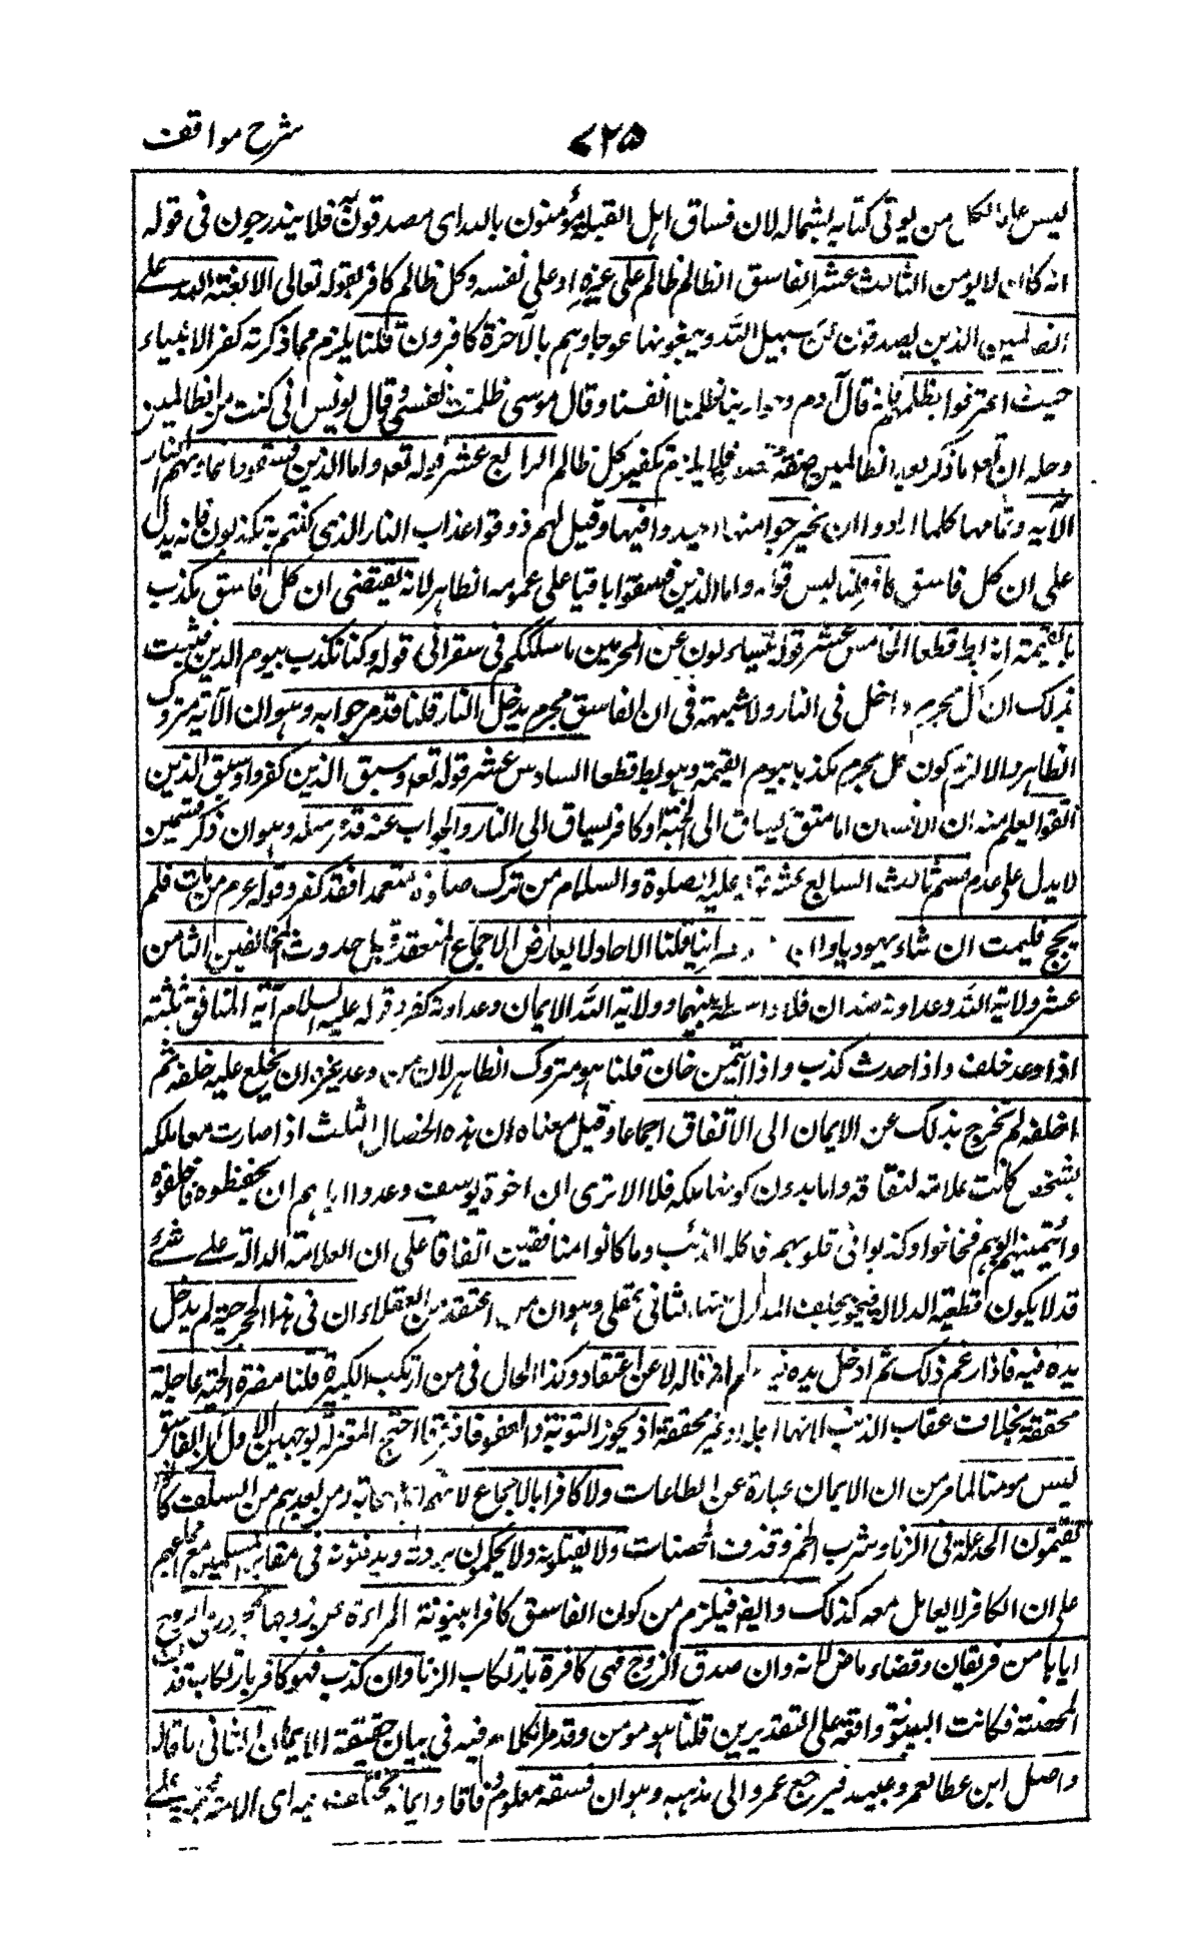 شرح مواقف
٧٢٥
ليس عاما لكل من يوتى كتابه بشماله لان فساق اهل القبلة مؤمنون بالله اى مصدقون به فلا يندرجون فى قوله
انه كان لا يومن الثالث عشر الفاسق ظالم على غيره او على نفسه وكل ظالم كافر لقوله تعالى الا لعنة الله على
الظالمين الذين يصدون عن سبيل الله ويبغونها عوجا وهم بالآخرة كافرون قلنا يلزم مما ذكرته كفر الانبياء
حيث اعترفوا بظلمهم فانه قال آدم وحوا ربنا ظلمنا انفسنا وقال موسى ظلمت نفسى وقال يونس انى كنت من الظالمين
وحله ان ما ذكر بعد الظالمين صفة فلا يلزم تكفير كل ظالم الرابع عشر قوله تعه واما الذين فسقوا فماويهم النار
الآية وتمامها كلما ارادوا ان يخرجوا منها اعيدوا فيها وقيل لهم ذوقوا عذاب النار الذى كنتم به تكذبون فانه يدل
على ان كل فاسق كافر قلنا ليس قوله واما الذين فسقوا باقيا على عمومه الظاهر لانه يقتضى ان كل فاسق مكذب
بالقيمة انه بط قطعا الخامس عشر قوله يتساءلون عن المجرمين ما سلككم فى سقر الى قوله وكنا نكذب بيوم الدين فيثبت
بذلك ان كل مجرم داخل فى النار ولا شبهة فى ان الفاسق مجرم يدخل النار قلنا قد مر جوابه وهو ان الآية متروك
الظاهر والا لزم كون كل مجرم مكذبا بيوم القيمة وهو بط قطعا السادس عشر قوله تعه وسيق الذين كفروا وسيق الذين
اتقوا يعلم منه ان الانسان اما متق يساق الى الجنة او كافر يساق الى النار والجواب عنه قد مر مثله وهو ان ذكر قسمين
لا يدل على عدم قسم ثالث السابع عشر قوله عليه الصلوة والسلام من ترك صلوة متعمدا فقد كفر وقوله عرم من مات فلم
يحج فليمت ان شاء يهوديا وان نصرانيا قلنا الاحاد لا يعارض الاجماع المنعقد قبل حدوث المخالفين الثامن
عشر ولاية الله وعداوته ضدان فلا واسطة بينهما وولاية الله الايمان وعداوته كفر وقوله عليه السلام آية المنافق ثلثة
اذا وعد خلف واذا حدث كذب واذا ائتمن خان قلنا هو متروك الظاهر لان من وعد غيره ان يخلع عليه خلعة ثم
اخلفه لم يخرج بذلك عن الايمان الى النفاق اجماعا وقيل معناه ان هذه الخصال الثلث اذا صارت معا ملكة
لشخص كانت علامة لنفاقه واما بدون كونها ملكة فلا الا ترى ان اخوة يوسف وعدوا اباهم ان يحفظوه فاخلفوه
وائتمنهم ابوهم فخانوا وكذبوا فى قولهم فاكله الذئب وما كانوا منافقين اتفاقا على ان العلامة الدالة على شئ
قد لا يكون قطعية الدلالة فيجوز تخلف المدلول عنها الثانى عقلى وهو ان من اعتقد من العقلاء ان فى هذا الجحر حية لم يدخل
يده فيه فاذا زعم ذلك ثم ادخل يده فيه علم انه قاله لا عن اعتقاد وكذا الحال فى من ارتكب الكبيرة قلنا مضرة الحية عاجلة
محققة بخلاف عقاب الذنب لانها آجلة وغير محققة اذ يجوز التوبة والعفو فافترقا احتج المعتزلة بوجهين الاول ان الفاسق
ليس مومنا لما مر من ان الايمان عبارة عن الطاعات ولا كافرا بالاجماع لانهم اى الصحابة ومن بعدهم من السلف كانوا
يقيمون الحد عليه فى الزنا وشرب الخمر وقذف المحصنات ولا يقتلونه ولا يحكمون بردته ويدفنونه فى مقابر المسلمين مع اجماعهم
على ان الكافر لا يعامل معه كذلك وايض فيلزم من كون الفاسق كافرا بينونة المراءة عن زوجها بمجرد رمى الزوج
اياها من فريقان وقضاء ماض لانه وان صدق الزوج فهى كافرة بارتكاب الزنا وان كذب فهو كافر بارتكاب قذف
المحصنة فكانت البينونة واقعة على التقديرين قلنا هو مومن وقد مر الكلام فيه فى بيان حقيقة الايمان الثانى ما قاله
واصل ابن عطا لعمرو بن عبيد فرجع عمرو الى مذهبه وهو ان فسقه معلوم وفاقا وايمانه مختلف فيه اى الامة مجتمعة على